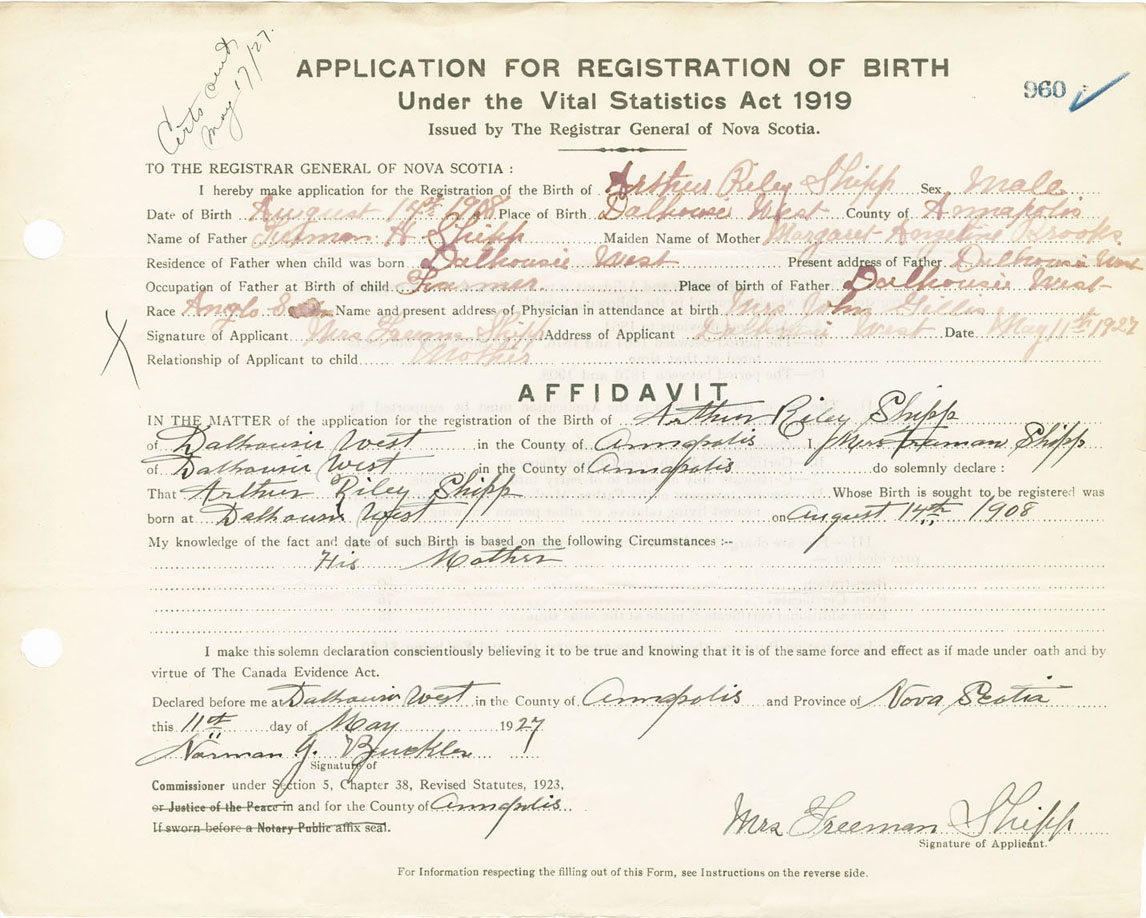 Certs sent
May 17/27.
APPLICATION FOR REGISTRATION OF BIRTH
960
Under the Vital Statistics Act 1919
Issued by The Registrar General of Nova Scotia.
TO THE REGISTRAR GENERAL OF NOVA SCOTIA :
I hereby make application for the Registration of the Birth of Arthur Riley Shipp Sex Male
Date of Birth August 14th 1908 Place of Birth Dalhousie West County of Annapolis
Name of Father Freeman H Shipp Maiden Name of Mother Margaret Angeline Brooks
Residence of Father when child was born Dalhousie West Present address of Father Dalhousie West
Occupation of Father at Birth of child Farmer Place of birth of Father Dalhousie West
Race Anglo Name and present address of Physician in attendance at birth Mrs John Gillis
Signature of Applicant Mrs Freeman Shipp Address of Applicant Dalhousie West Date May 11th 1927
Relationship of Applicant to child Mother
X
AFFIDAVIT
IN THE MATTER of the application for the registration of the Birth of Arthur Riley Shipp
of Dalhousie West in the County of Annapolis I, Mrs Freeman Shipp
of Dalhousie West in the County of Annapolis do solemnly declare :
That Arthur Riley Shipp Whose Birth is sought to be registered was
born at Dalhousie West on August 14th 1908
My knowledge of the fact and date of such Birth is based on the following Circumstances :--
His Mother
I make this solemn declaration conscientiously believing it to be true and knowing that it is of the same force and effect as if made under oath and by
virtue of The Canada Evidence Act.
Declared before me at Dalhousie West in the County of Annapolis and Province of Nova Scotia
this 11th day of May 1927
Norman G. Buckler
Signature of
Commissioner under Section 5, Chapter 38, Revised Statutes, 1923,
or Justice of the Peace in and for the County of Annapolis
If sworn before a Notary Public affix seal.
Mrs Freeman Shipp
Signature of Applicant.
For Information respecting the filling out of this Form, see Instructions on the reverse side.